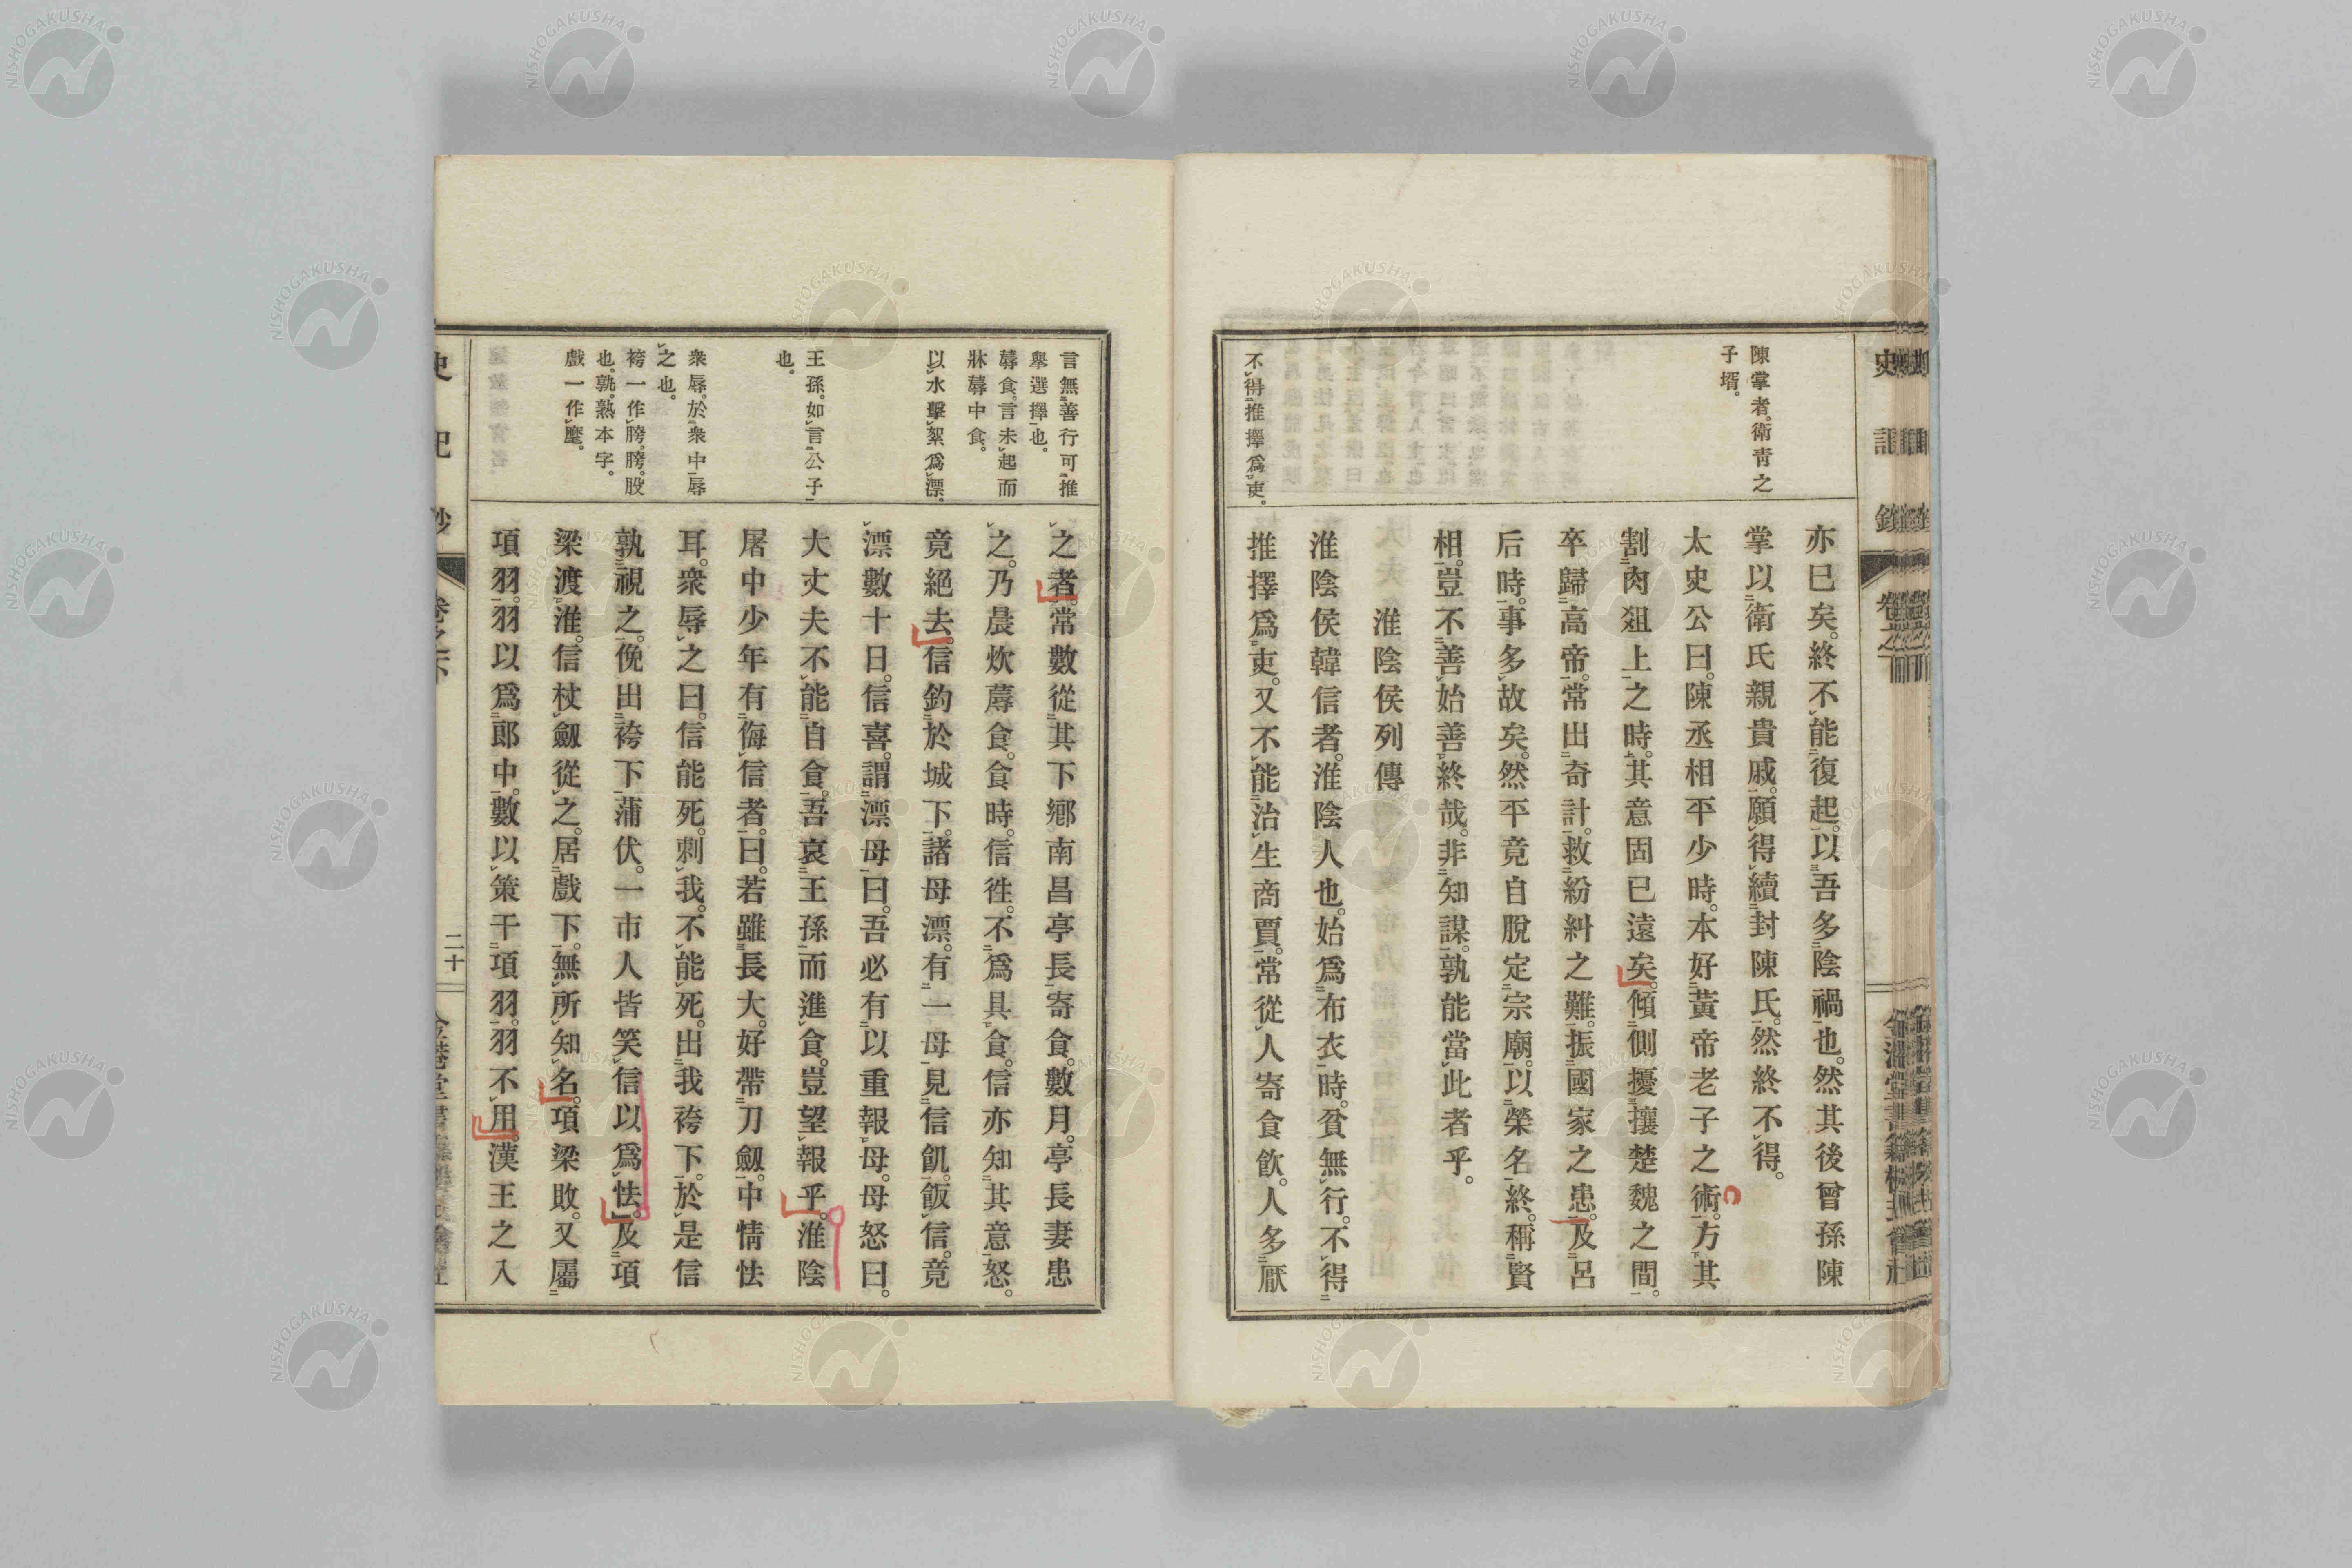 陳掌者。衛靑之
子壻。
不得推擇爲吏。
亦已矣。終不能復起。以吾多陰禍也。然其後曾孫陳
掌以衛氏親貴戚。願得續封陳氏。然終不得。
太史公曰。陳丞相平少時。本好黃帝老子之術。方其
割肉俎上之時。其意固已遠矣。傾側擾攘楚魏之間。
卒歸高帝。常出奇計。救紛糾之難。振國家之患。及呂
后時。事多故矣。然平竟自脫定宗廟。以榮名終。稱賢
相。豈不善始善終哉。非知謀。孰能當此者乎。
淮陰侯列傳
淮陰侯韓信者。淮陰人也。始爲布衣時。貧無行。不得
推擇爲吏。又不能治生商賈。常從人寄食飮。人多厭
言無善行可推
擧選擇也。
蓐食。言未起而
牀蓐中食。
以水擊絮爲漂。
王孫。如言公子
也。
衆辱。於衆中辱
之也。
袴一作胯。胯。股
也。孰。熟本字。
戲一作麾。
之者。常數從其下鄕南昌亭長寄食。數月。亭長妻患
之。乃晨炊蓐食。食時。信徃。不爲具食。信亦知其意怒。
竟絕去。信釣於城下。諸母漂。有一母見信飢。飯信。竟
漂數十日。信喜。謂漂母曰。吾必有以重報母。母怒曰。
大丈夫不能自食。吾哀王孫而進食。豈望報乎。淮陰
屠中少年有侮信者。曰。若雖長大。好帶刀劔。中情怯
耳。衆辱之曰。信能死。刺我。不能死。出我袴下。於是信
孰視之。俛出袴下蒲伏。一市人皆笑信以爲怯。及項
梁渡淮。信杖劔從之。居戲下。無所知名。項梁敗。又屬
項羽。羽以爲郎中。數以策干項羽。羽不用。漢王之入
二十
NISHOGAKUSHA